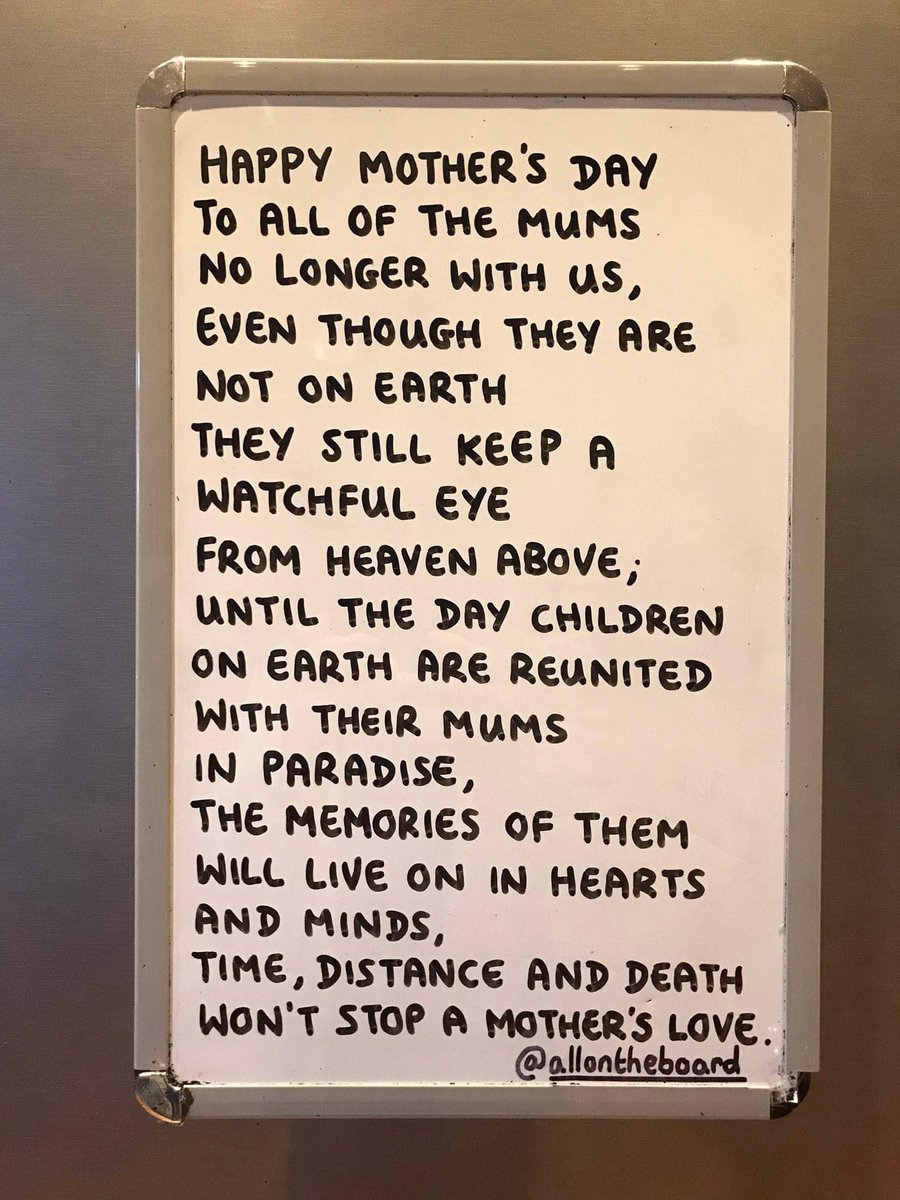 HAPPY MOTHER'S DAY
TO ALL OF THE MUMS
NO LONGER WITH US,
EVEN THOUGH THEY ARE
NOT ON EARTH
THEY STILL KEEP A
WATCHFUL EYE
FROM HEAVEN ABOVE;
UNTIL THE DAY CHILDREN
ON EARTH ARE REUNITED
WITH THEIR MUMS
IN PARADISE,
THE MEMORIES OF THEM
WILL LIVE ON IN HEARTS
AND MINDS,
TIME, DISTANCE AND DEATH
WON'T STOP A MOTHER'S LOVE.
@allontheboard